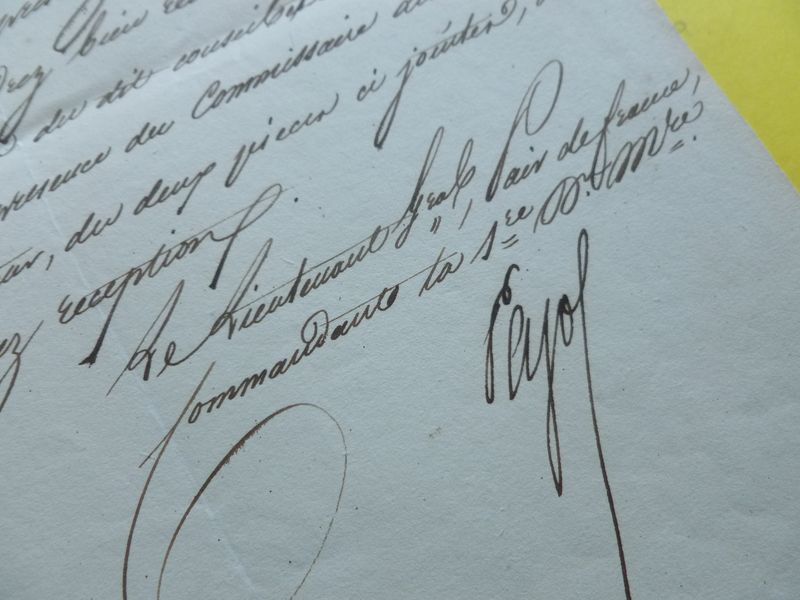 bien
du dit conseil
presence du Commissaire du
, du deux pieces ci jointes,
reception.
Le Lieutenant Gral, Pair de france,
Commandant la 1re Don Mre.
Pajol